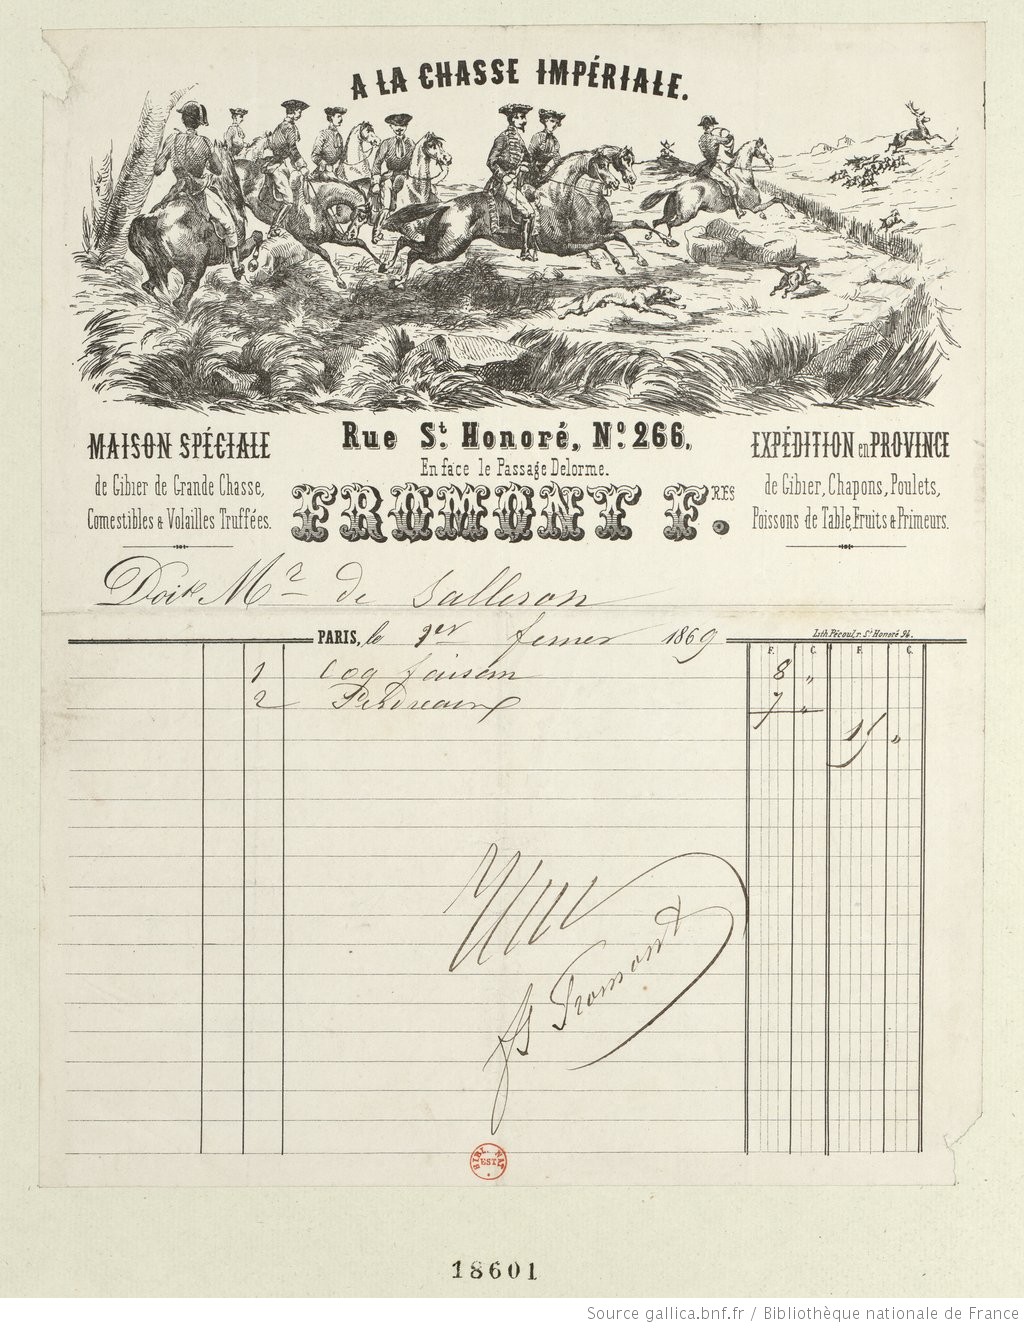 A LA CHASSE IMPÉRIALE.
MAISON SPÉCIALE
de Gibier de Grande Chasse,
Comestibles & Volailles Truffées.
Rue St. Honoré, No. 266,
En face le Passage Delorme.
FROMONT FRES.
EXPÉDITION en PROVINCE
de Gibier, Chapons, Poulets,
Poissons de Table, Fruits & Primeurs.
Doit Mr de Salleron
PARIS, le 1er 1869
Lith. Pécoul, r. St Honoré 94.
F. C. F. C.
1 Coq faisan 8 "
2 Perdreaux 7 "
15 "
fs Fromont
BIBL. NAT. EST.
18601
Source gallica.bnf.fr / Bibliothèque nationale de France